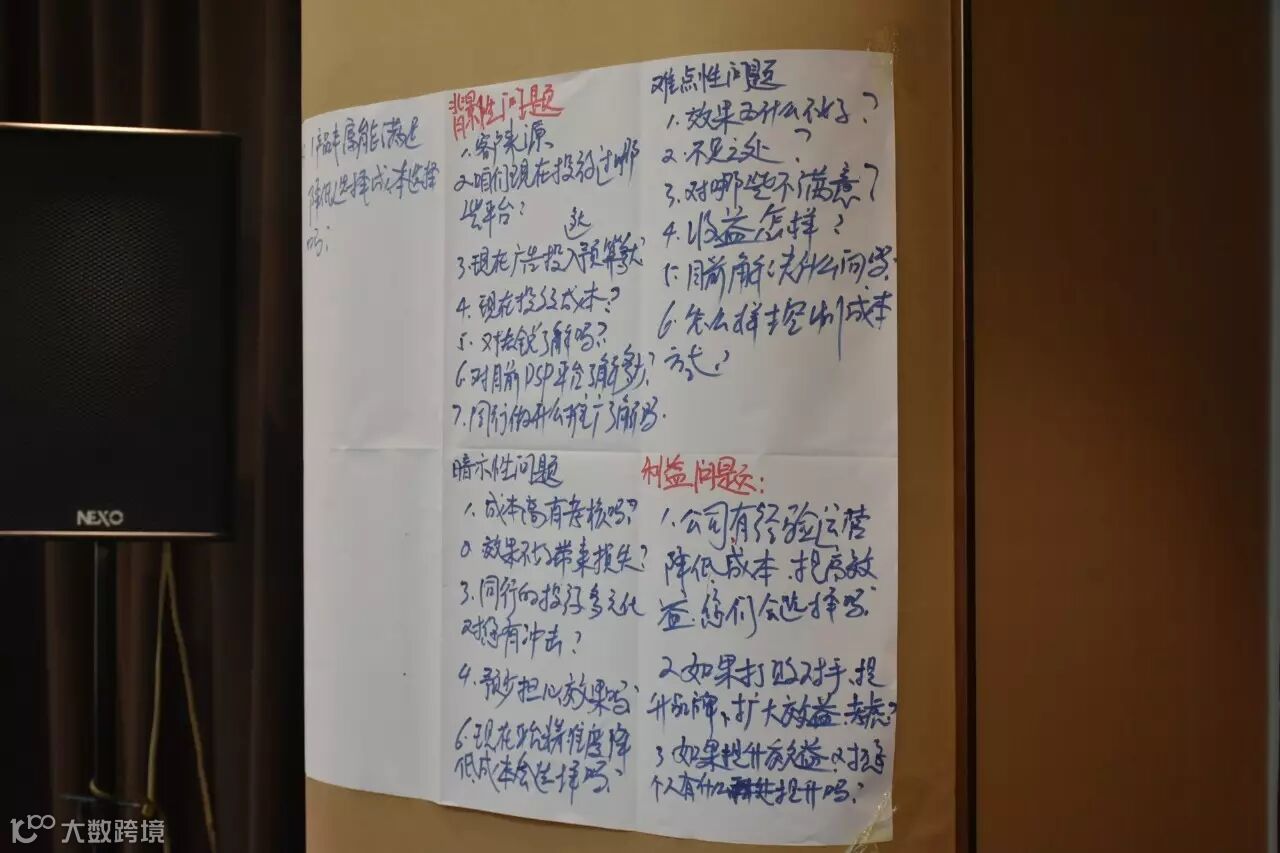 1产品丰富能满足
降低选择成本选择
吗?
背景性问题
1.客户来源
2.咱们现在投放过哪
些平台?
3.现在广告投入预算
4.现在投放成本?
5.对
了解吗?
6.对目前DSP平台了解多少?
7.同行做什么推广了解吗
难点性问题
1.效果为什么不好?
2.不足之处?
3.对哪些不满意?
4.收益怎样?
5.目前解决什么问
6.怎么样控制成本
方式?
暗示性问题
1.成本高有考核吗?
效果不好带来损失?
3.同行的投放多元化
对您有冲击?
4.预步担心效果吗
6.现在
精准度降
低成本会选择吗?
利益问题:
1.公司有经验运营
降低成本、提高效
益.你们会选择吗
2.如果打败对手、提
升品牌、扩大效益.考虑?
3.如果提升效益.对
个人有什么
提升吗?
NEXO
10100 大数跨境